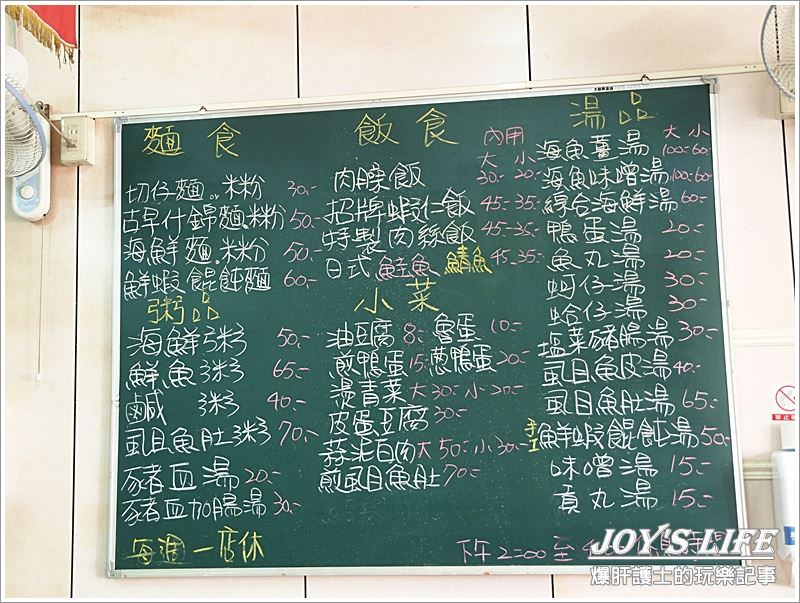 麵食
切仔麵.米粉 30.-
古早什錦麵.米粉 50.-
海鮮麵.米粉 50.-
鮮蝦餛飩麵 60.-
粥品
海鮮粥 50.-
鮮魚粥 65.-
鹹粥 40.-
虱目魚肚粥 70.-
豬血湯 20.-
豬血加腸湯 30.-
每週一店休
飯食
內用
大 小
肉臊飯 30.- 20.-
招牌蝦仁飯 45.- 35.-
特製肉絲飯 45.- 35.-
日式鮭魚 鯖魚 45.- 35.-
小菜
油豆腐 8.- 魯蛋 10.-
煎鴨蛋 15.- 蔥鴨蛋 20.-
燙青菜 大30.- 小20.-
皮蛋豆腐 30.-
蒜泥白肉 大50.- 小30.-
煎虱目魚肚 70.-
湯品
大 小
海魚薑湯 100.- 60.-
海魚味噌湯 100.- 60.-
綜合海鮮湯 60.-
鴨蛋湯 20.-
魚丸湯 20.-
蚵仔湯 30.-
蛤仔湯 30.-
塩菜豬腸湯 30.-
虱目魚皮湯 40.-
虱目魚肚湯 65.-
手工鮮蝦餛飩湯 50.-
味噌湯 15.-
貢丸湯 15.-
下午2:00至
JOY'S LIFE
爆肝護士的玩樂記事